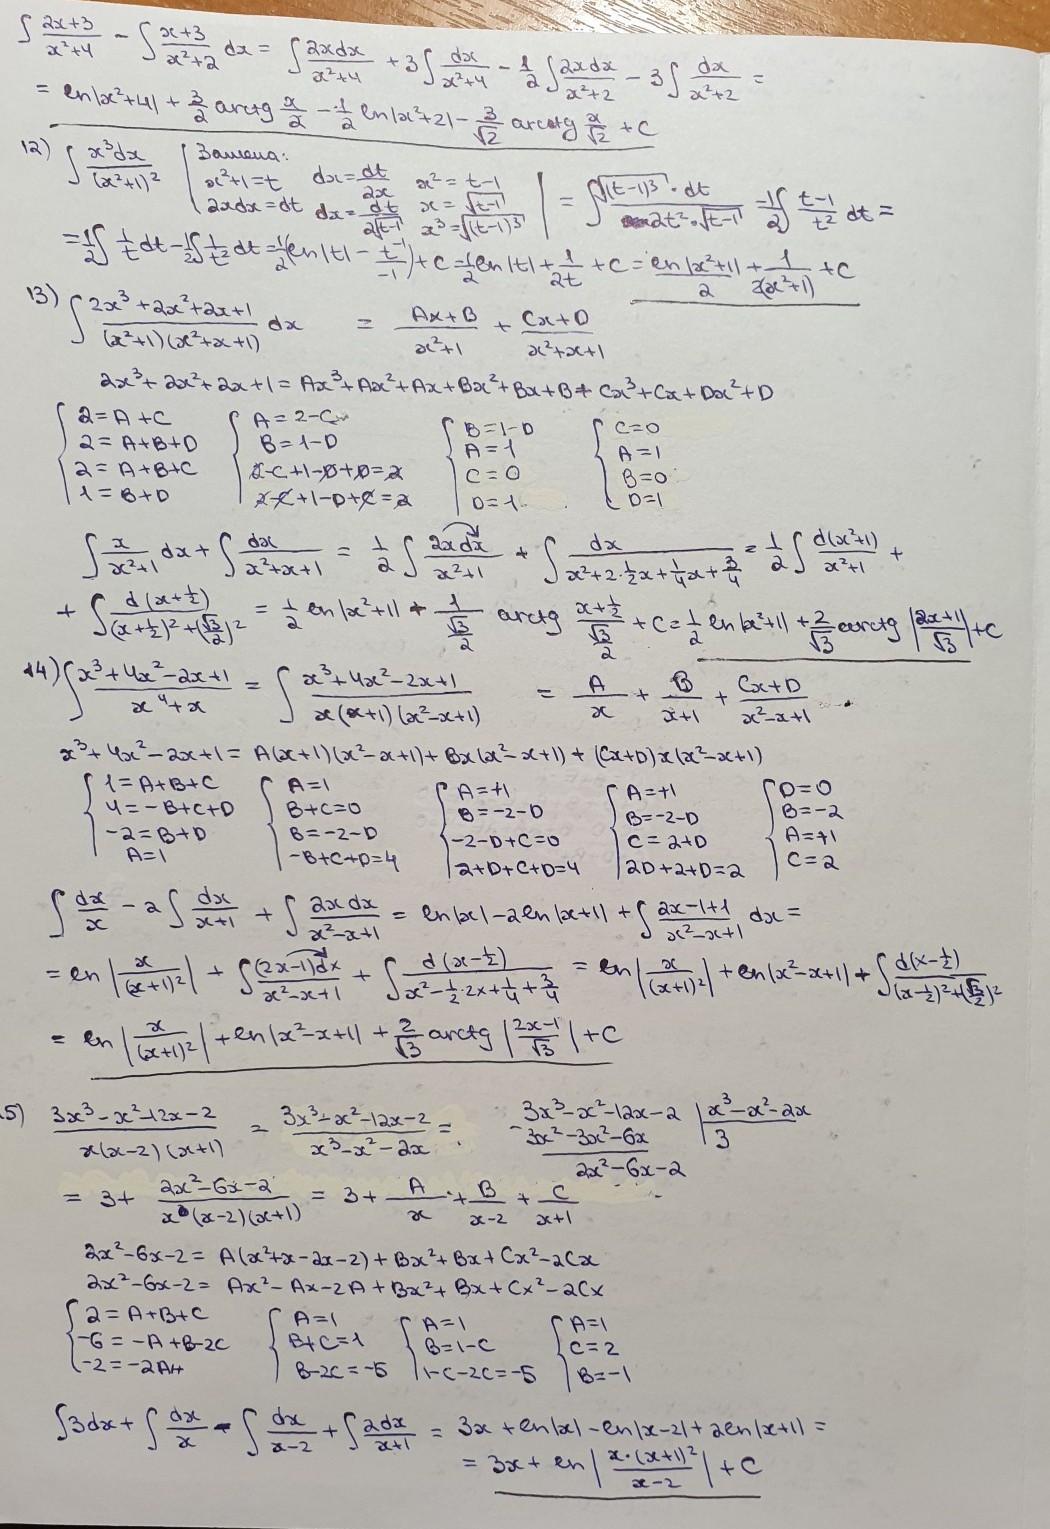 ∫ (2x+3)/(x²+4) − ∫ (x+3)/(x²+2) dx = ∫ 2xdx/(x²+4) + 3∫ dx/(x²+4) − 1/2 ∫ 2xdx/(x²+2) − 3∫ dx/(x²+2) =
= ln|x²+4| + 3/2 arctg x/2 − 1/2 ln|x²+2| − 3/√2 arctg x/√2 + C
12) ∫ x³dx/(x²+1)² | Замена: x²+1=t 2xdx=dt dx=dt/2x dx=dt/2√(t-1) x²=t-1 x=√(t-1) x³=√(t-1)³ | = ∫ √(t-1)³·dt/(2t²·√(t-1)) = 1/2 ∫ (t-1)/t² dt =
= 1/2 ∫ 1/t dt − 1/2 ∫ 1/t² dt = 1/2 (ln|t| − t⁻¹/-1) + C = 1/2 ln|t| + 1/2t + C = ln|x²+1|/2 + 1/2(x²+1) + C
13) ∫ (2x³+2x²+2x+1)/((x²+1)(x²+x+1)) dx = (Ax+B)/(x²+1) + (Cx+D)/(x²+x+1)
2x³+2x²+2x+1 = Ax³+Ax²+Ax+Bx²+Bx+B+Cx³+Cx+Dx²+D
{ 2=A+C { A=2-C { B=1-D { C=0
2=A+B+D B=1-D A=1 A=1
2=A+B+C 2-C+1-D+D=2 C=0 B=0
1=B+D 2-C+1-D+C=2 D=1 D=1
∫ x/(x²+1) dx + ∫ dx/(x²+x+1) = 1/2 ∫ 2xdx/(x²+1) + ∫ dx/(x²+2·1/2x+1/4x+3/4) = 1/2 ∫ d(x²+1)/(x²+1) +
+ ∫ d(x+1/2)/((x+1/2)²+(√3/2)²) = 1/2 ln|x²+1| + 1/(√3/2) arctg (x+1/2)/(√3/2) + C = 1/2 ln|x²+1| + 2/√3 arctg |(2x+1)/√3| + C
14) ∫ (x³+4x²-2x+1)/(x⁴+x) = ∫ (x³+4x²-2x+1)/(x(x+1)(x²-x+1)) = A/x + B/(x+1) + (Cx+D)/(x²-x+1)
x³+4x²-2x+1 = A(x+1)(x²-x+1) + Bx(x²-x+1) + (Cx+D)x(x²-x+1)
{ 1=A+B+C { A=1 { A=+1 { A=+1 { D=0
4=-B+C+D B+C=0 B=-2-D B=-2-D B=-2
-2=B+D B=-2-D -2-D+C=0 C=2+D A=+1
A=1 -B+C+D=4 2+D+C+D=4 2D+2+D=2 C=2
∫ dx/x − 2∫ dx/(x+1) + ∫ 2xdx/(x²-x+1) = ln|x| − 2ln|x+1| + ∫ (2x-1+1)/(x²-x+1) dx =
= ln|x/(x+1)²| + ∫ (2x-1)dx/(x²-x+1) + ∫ d(x-1/2)/(x²-1/2·2x+1/4+3/4) = ln|x/(x+1)²| + ln|x²-x+1| + ∫ d(x-1/2)/((x-1/2)²+(√3/2)²)
= ln|x/(x+1)²| + ln|x²-x+1| + 2/√3 arctg |(2x-1)/√3| + C
5) (3x³-x²-12x-2)/(x(x-2)(x+1)) = (3x³-x²-12x-2)/(x³-x²-2x) = 3x³-x²-12x-2 | x³-x²-2x
- 3x²-3x²-6x | 3
2x²-6x-2
= 3 + (2x²-6x-2)/(x(x-2)(x+1)) = 3 + A/x + B/(x-2) + C/(x+1)
2x²-6x-2 = A(x²+x-2x-2) + Bx²+Bx+Cx²-2Cx
2x²-6x-2 = Ax²-Ax-2A+Bx²+Bx+Cx²-2Cx
{ 2=A+B+C { A=1 { A=1 { A=1
-6=-A+B-2C B+C=1 B=1-C C=2
-2=-2A B-2C=-5 1-C-2C=-5 B=-1
∫3dx + ∫ dx/x − ∫ dx/(x-2) + ∫ 2dx/(x+1) = 3x + ln|x| − ln|x-2| + 2ln|x+1| =
= 3x + ln|x·(x+1)²/(x-2)| + C